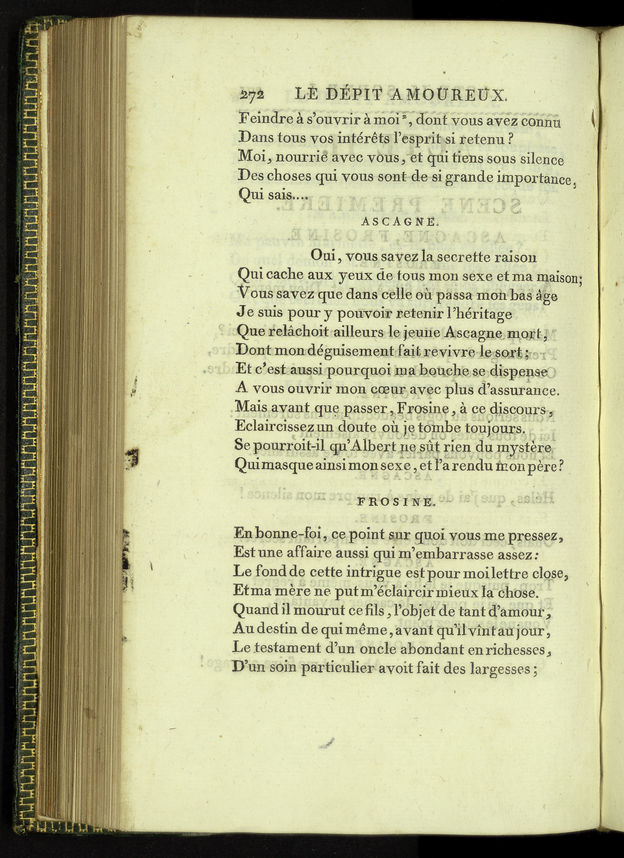 272 LE DÉPIT AMOUREUX.
Feindre à s'ouvrir à moi*, dont vous avez connu
Dans tous vos intérêts l'esprit si retenu ?
Moi, nourrie avec vous, et qui tiens sous silence
Des choses qui vous sont de si grande importance,
Qui sais....
ASCAGNE.
Oui, vous savez la secrette raison
Qui cache aux yeux de tous mon sexe et ma maison;
Vous savez que dans celle où passa mon bas âge
Je suis pour y pouvoir retenir l'héritage
Que relâchoit ailleurs le jeune Ascagne mort,
Dont mon déguisement fait revivre le sort;
Et c'est aussi pourquoi ma bouche se dispense
A vous ouvrir mon cœur avec plus d'assurance.
Mais avant que passer, Frosine, à ce discours,
Eclaircissez un doute où je tombe toujours.
Se pourroit-il qu'Albert ne sût rien du mystère
Qui masque ainsi mon sexe, et l'a rendu mon père?
FROSINE.
En bonne-foi, ce point sur quoi vous me pressez,
Est une affaire aussi qui m'embarrasse assez:
Le fond de cette intrigue est pour moi lettre close,
Et ma mère ne put m'éclaircir mieux la chose.
Quand il mourut ce fils, l'objet de tant d'amour,
Au destin de qui même, avant qu'il vînt au jour,
Le testament d'un oncle abondant en richesses,
D'un soin particulier avoit fait des largesses;